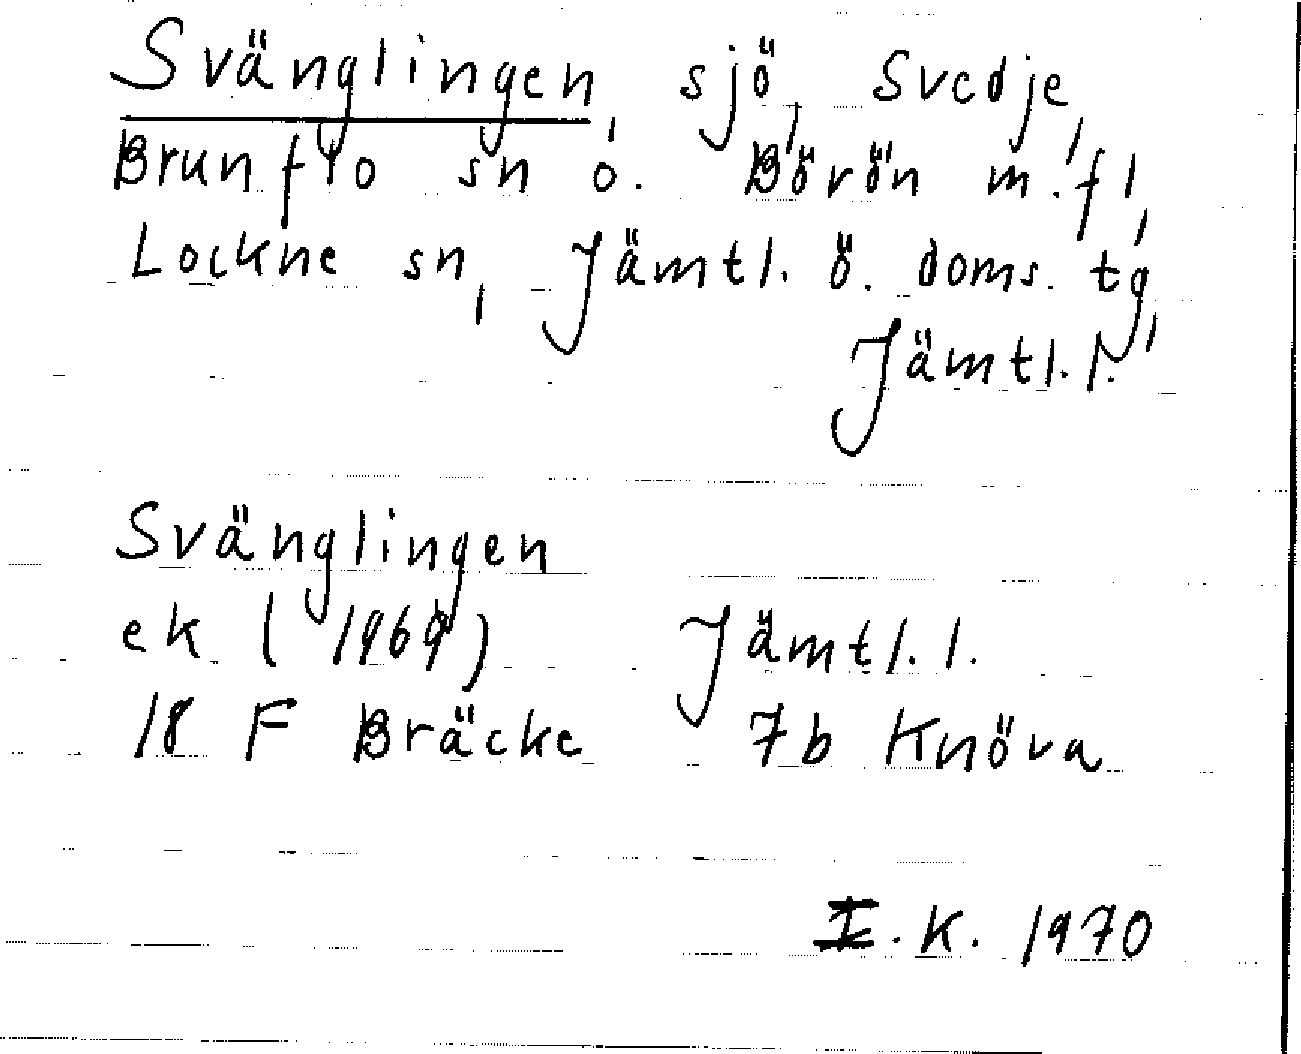 Svänglingen, sjö, Svedje,
Brunflo sn o. Börön m.fl,
Lockne sn, Jämtl. ö. doms. tg,
Jämtl. l.
Svänglingen
ek (1969) Jämtl. l.
18 F Bräcke 7b Knöva
I.K. 1970